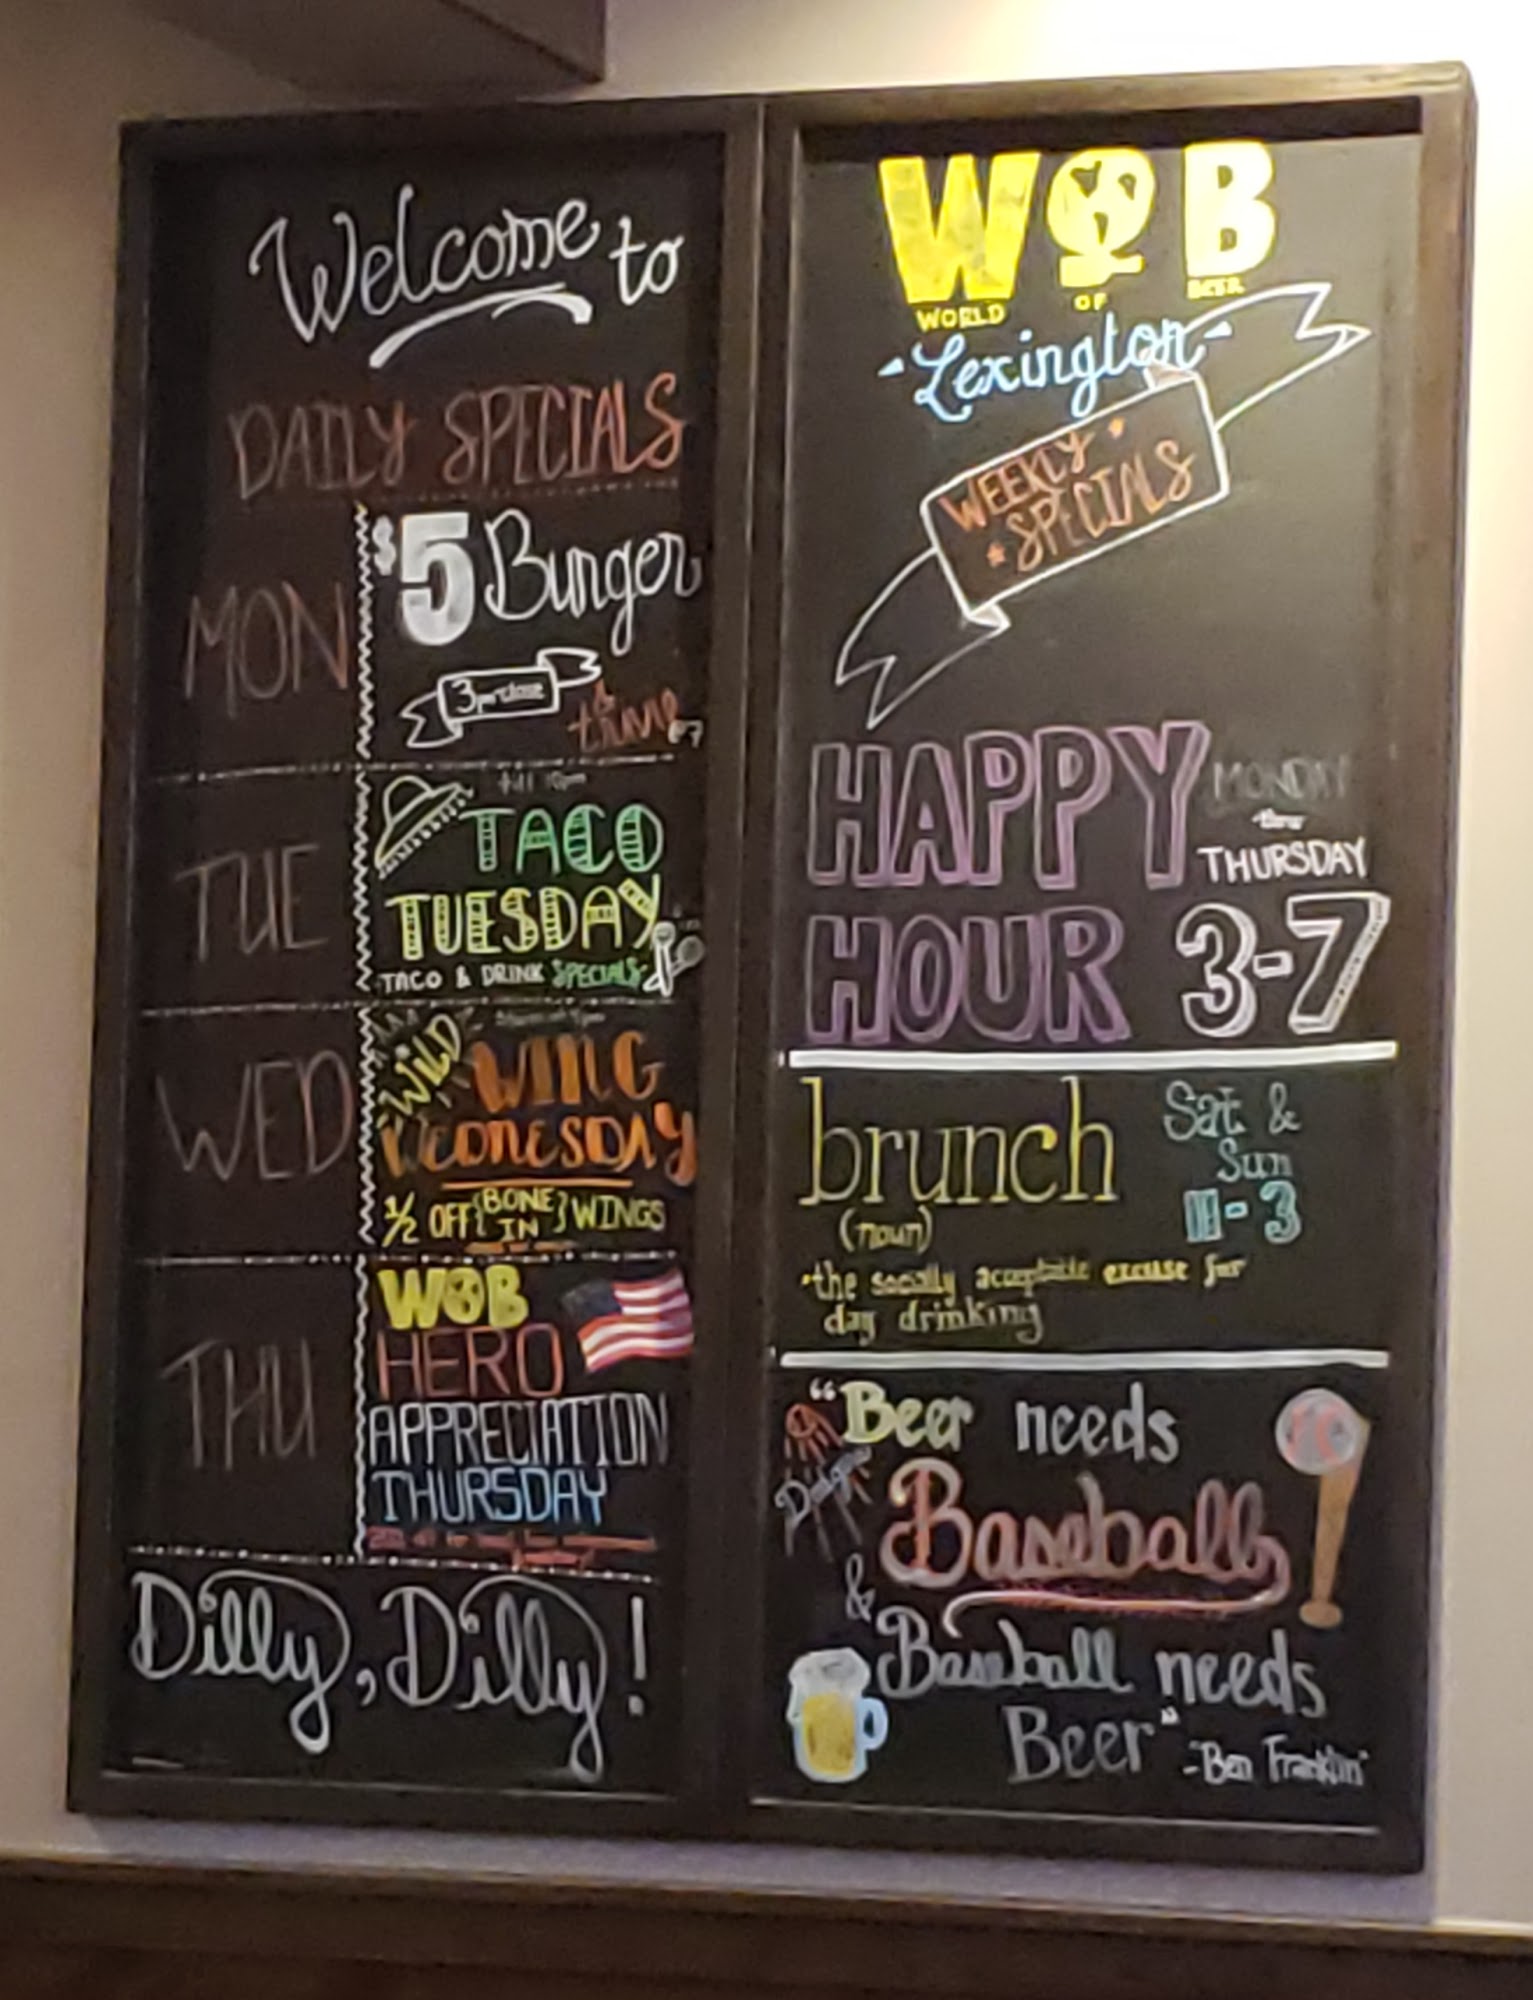 Welcome to
DAILY SPECIALS
MON
$5 Burger
3
TUE
till 10pm
TACO
TUESDAY
TACO & DRINK SPECIALS
WED
WILD WING
WEDNESDAY
1/2 OFF {BONE IN} WINGS
THU
WOB
HERO
APPRECIATION
THURSDAY
Dilly, Dilly!
WOB
WORLD OF BEER
-Lexington-
WEEKLY
SPECIALS
HAPPY
HOUR
MONDAY
thru
THURSDAY
3-7
brunch
(noun)
Sat &
Sun
11-3
•the socially acceptable excuse for
day drinking
"Beer needs
Dodgers
Baseball
&
Baseball needs
Beer"
-Ben Franklin